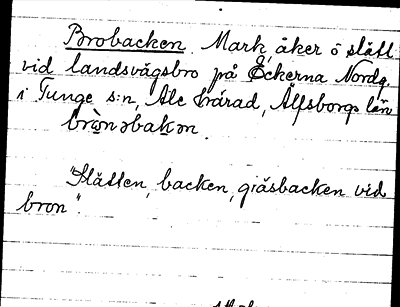 Brobacken. Mark, åker o slätt
vid landsvägsbro på Eckerna Nordg.
i Tunge s:n, Ale härad, Älfsborgs län
bròn əbakən.
"Slätten, backen, gräsbacken vid
bron".